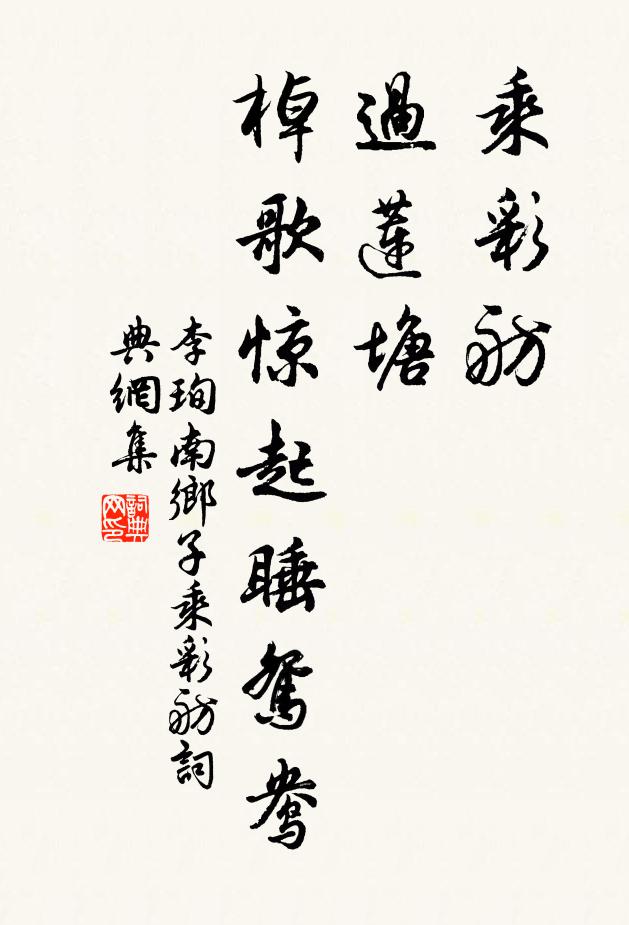 乘彩舫
過蓮塘
棹歌惊起睡鴛鴦
李珣南鄉子乘彩舫詞
典網集
詞典网印